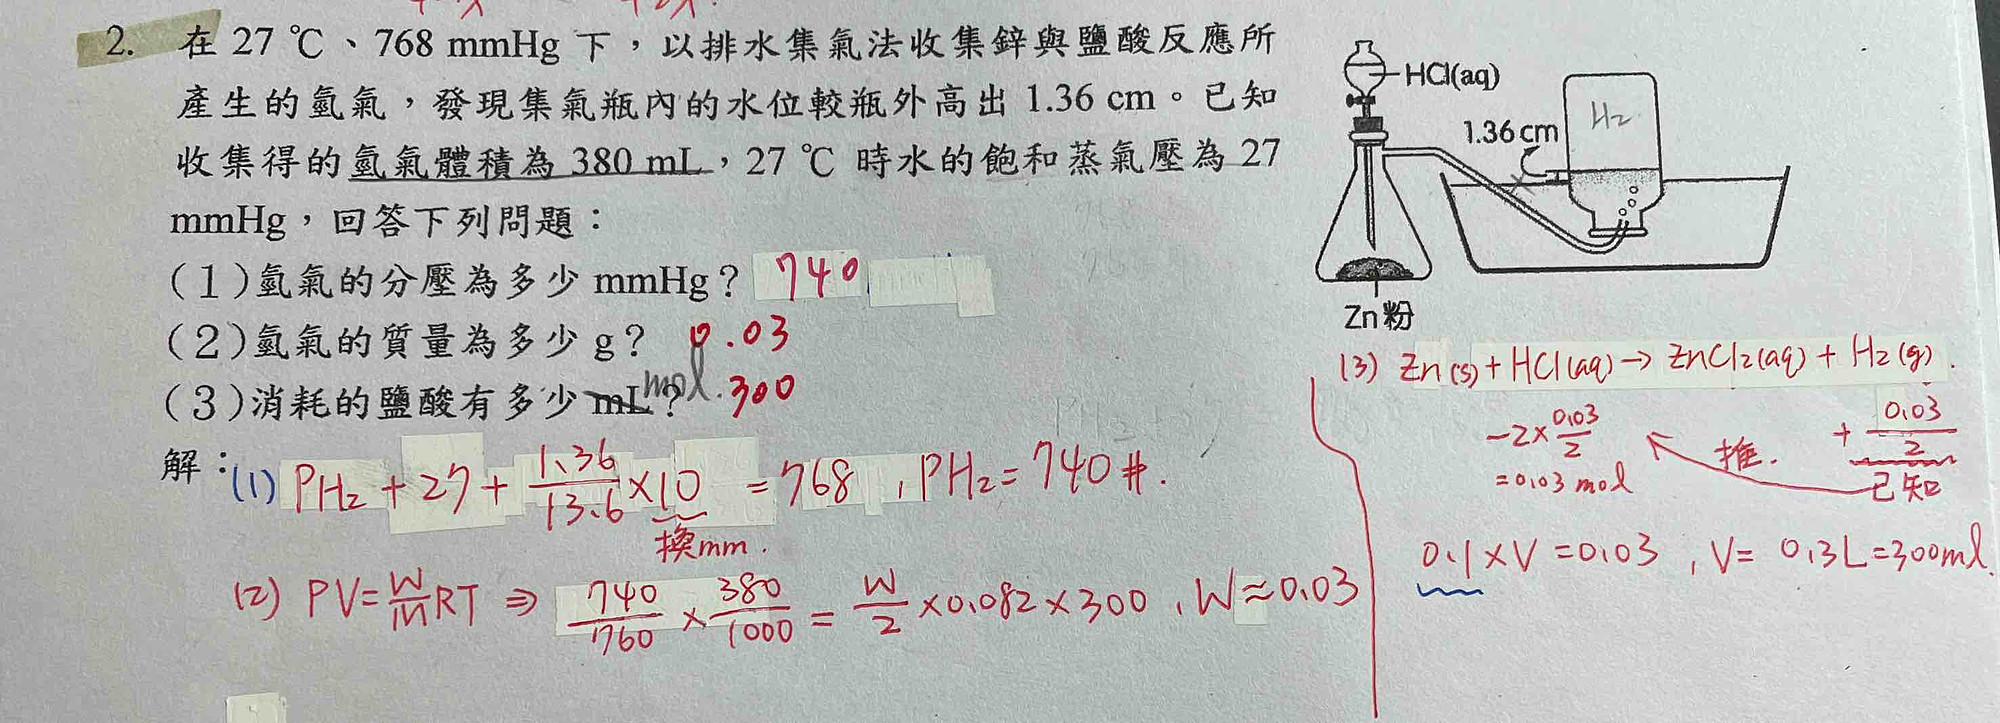 2. 在 27 ℃、768 mmHg 下，以排水集氣法收集鋅與鹽酸反應所
產生的氫氣，發現集氣瓶內的水位較瓶外高出 1.36 cm。已知
收集得的氫氣體積為 380 mL，27 ℃ 時水的飽和蒸氣壓為 27
mmHg，回答下列問題：
(1)氫氣的分壓為多少 mmHg？ 740
(2)氫氣的質量為多少 g？ 0.03
(3)消耗的鹽酸有多少 mL？ mol. 300
解：(1) PH2 + 27 + 1.36/13.6 × 10 = 768, PH2 = 740 #.
換mm.
(2) PV = W/M RT ⇒ 740/760 × 380/1000 = W/2 × 0.082 × 300, W ≈ 0.03
HCl(aq)
H2
1.36 cm
Zn 粉
(3) Zn(s) + HCl(aq) → ZnCl2(aq) + H2(g).
-2 × 0.03/2 + 0.03/2
= 0.03 mol 推. 已知
0.1 × V = 0.03, V = 0.3L = 300ml.